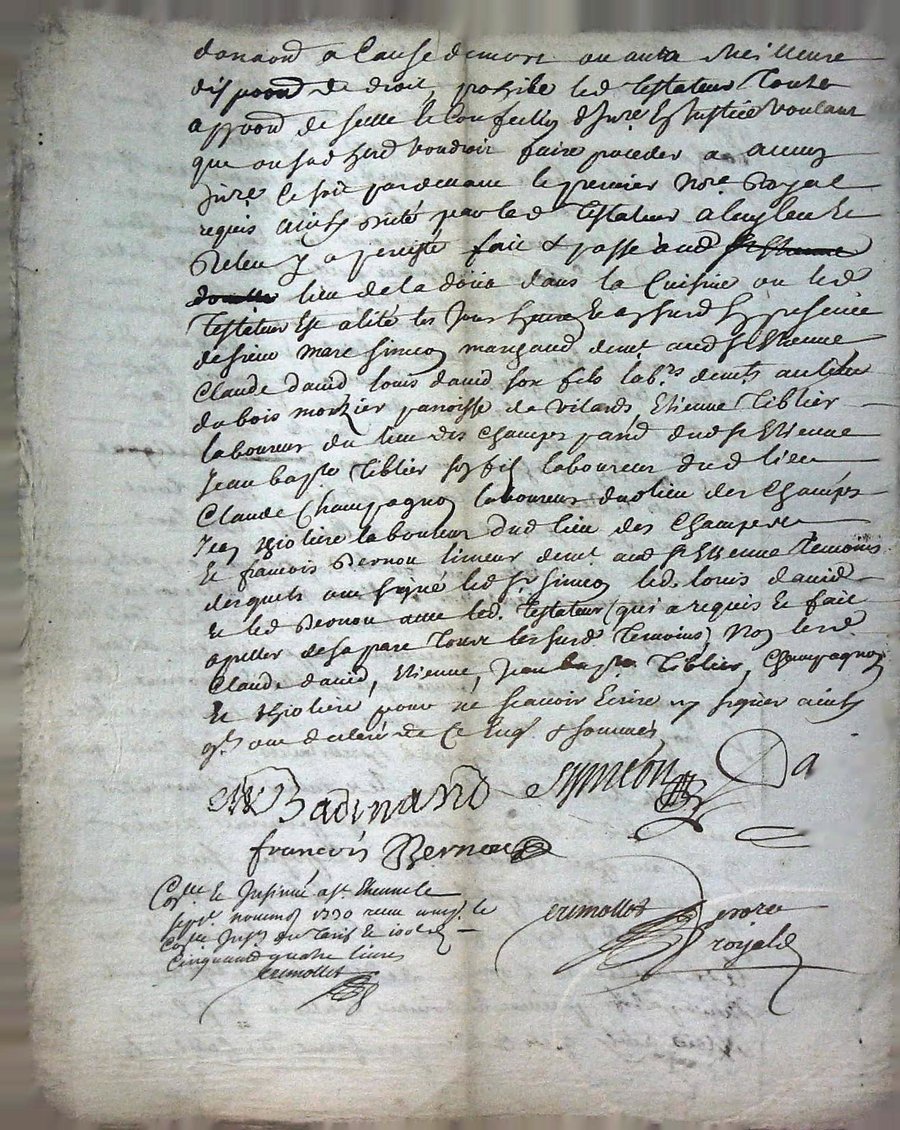 donaond a Cause de mort ou autre Meilleure
disposond de droit, prohibe led Testateur Toutte
apposond de scelle et Confection d'Inre Et Justice voulant
que ou sesd herd voudroit faire proceder a aucun
Inre Ce soit pardevant le premier Nore Royal
requis ainsy dicté par led Testateur a luy leu Et
Releu y a persisté fait & passé aud
lieu de la doua dans la Cuisine ou led
Testateur Est alité les Jour heure Et an susd En presence
de sieur Marc Simeon marchand demt aud St Etienne
Claude david louis david son fils labrs demts au lieu
du bois mortzier parroisse de vilards, Etienne Tiblier
laboureur du lieu des Champs parr dud St Etienne
Jean bapte Tiblier son fils laboureur dud lieu
Claude Champagnon laboureur dud lieu des Champs
Jean Thioliere laboureur dud lieu des Champs
Et francois Bernou limeur demt aud St Etienne Temoins
desquels ont signé led Sr Simeon led. louis david
Et led Bernou avec led. Testateur (qui a requis Et fait
apeller de sa part Tous les susd Temoins) Non lesd
Claude david, Etienne, Jean bapte Tiblier, Champagnon
Et Thioliere pour ne scavoir Ecrire ny signer ainsy
qls ont declaré de Ce Enqs & sommés
Badinand Symeon Da
francois Bernou
Collé Et Insinué a St Etienne le
sept novemb 1730 receu
Collé Insn du Tarif Et
Cinquante quatre livres
eremollet
eremollet
royal